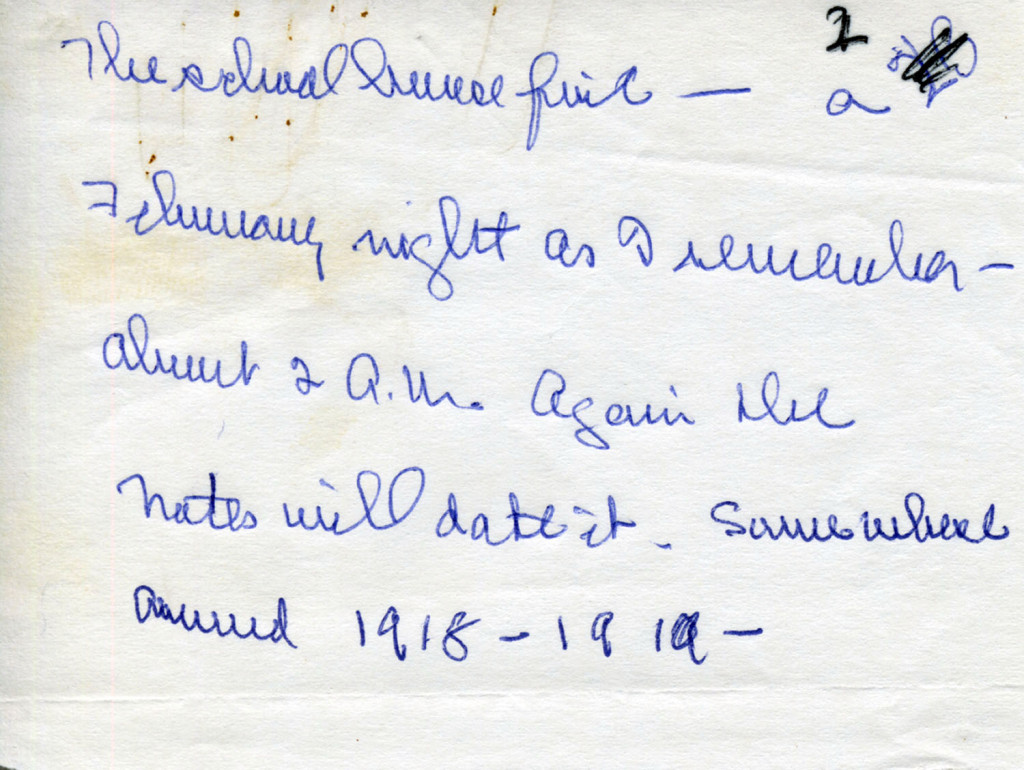 2
The school house fire — a
February night as I remember —
about 2 A.M. Again the
notes will date it. Somewhere
around 1918 - 1919 —